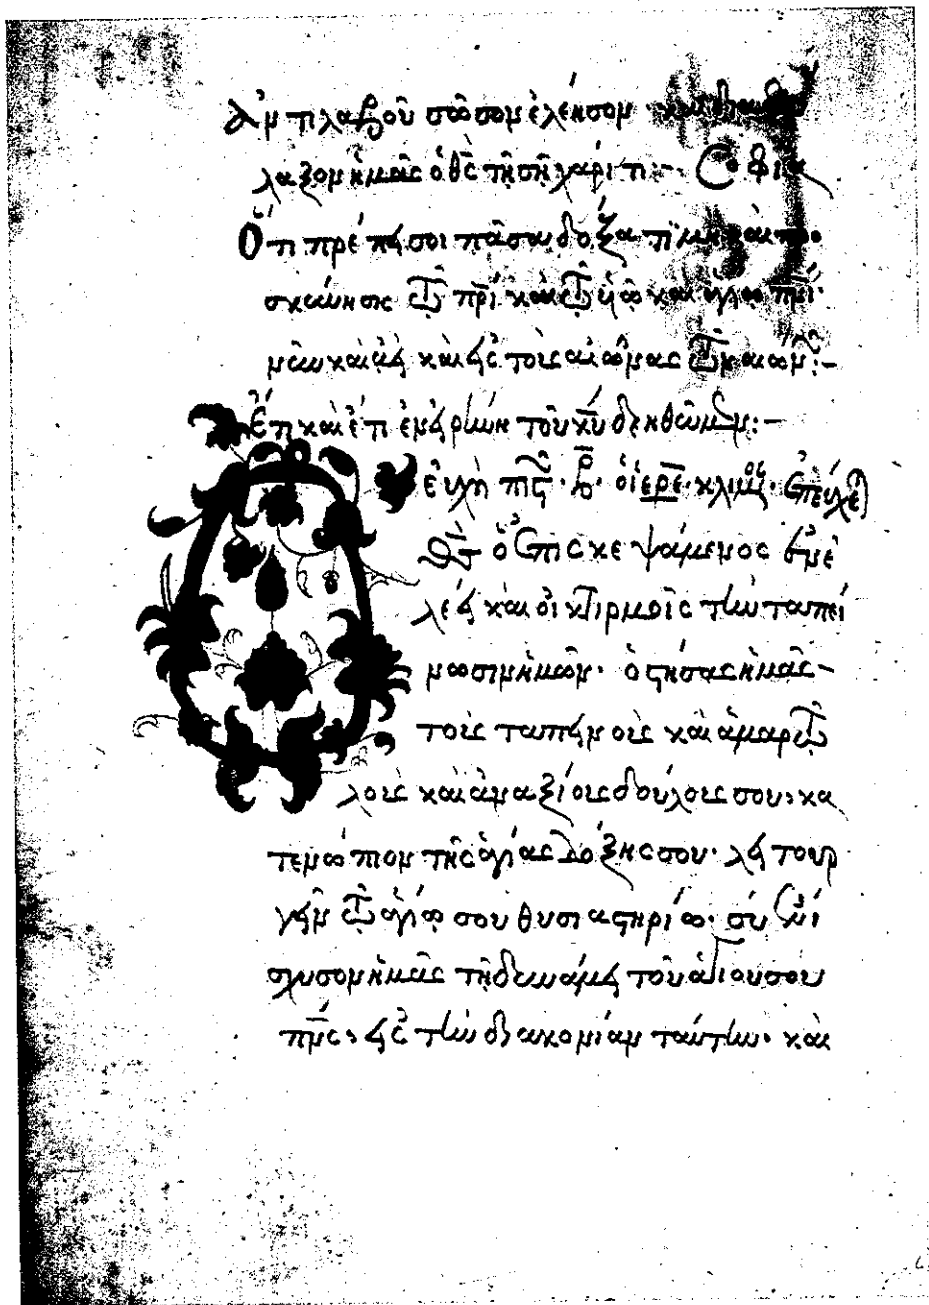 Ἀντιλαβοῦ σῶσον ἐλέησον καὶ διαφύ
λαξον ἡμᾶς ὁ θς τῇ σῇ χάριτι· Σοφία
Ὅτι πρέπει σοι πᾶσα δόξα τιμὴ καὶ προ
σκύνησις τῶ πρὶ καὶ τῶ υἱῶ καὶ ἁγίω πνι
νῦν καὶ ἀεὶ καὶ εἰς τοὺς αἰῶνας τῶν αἰών:–
Ἔτι καὶ ἔτι ἐν εἰρήνη τοῦ κυ δεηθῶμεν:–
εὐχὴ πιστ· β· ὁ ἱερε· κλιν· ἐπεύχε
Θς ὁ ἐπισκεψάμενος ἐν ἐλέ
ει καὶ οἰκτιρμοῖς τὴν ταπεί
νωσιν ἡμῶν· ὁ στήσας ἡμᾶς–
τοὺς ταπεινοὺς καὶ ἁμαρτω
λοὺς καὶ ἀναξίους δούλους σου, κα
τενώπιον τῆς ἁγίας δόξης σου· λειτουρ
γεῖν τῶ ἁγίω σου θυσιαστηρίω· σὺ ἐνί
σχυσον ἡμᾶς τῇ δυνάμει τοῦ ἁγίου σου
πνς, εἰς τὴν διακονίαν ταύτην· καὶ